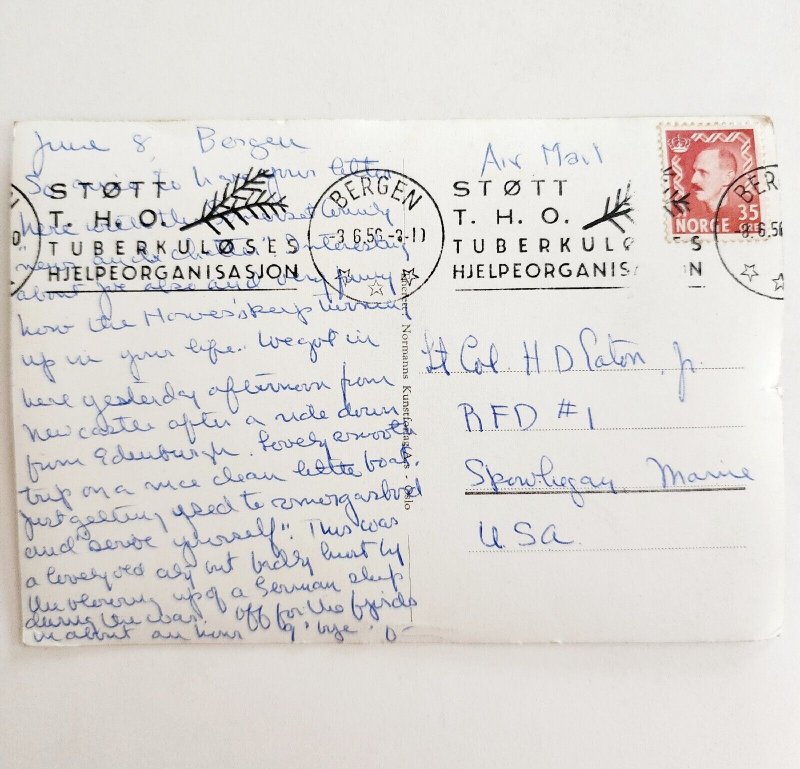 June 8, Bergen
So nice to have your letter
here
"news
about Joe also and very funny
how the Howes keep turning
up in your life. We got in
here yesterday afternoon from
Newcastle after a ride down
from Edenburgh. Lovely smooth
trip on a nice clean little boat.
Just getting used to smorgasbord
and "serve yourself". This was
a lovely old city but badly hurt by
the blowing up of a German ship
during the war. Off for the fjords
in about an hour G'bye
STØTT
T. H. O.
TUBERKULØSES
HJELPEORGANISASJON
BERGEN
8.6.56
Normanns Kunstforlag A/S Oslo
Air Mail
STØTT
T. H. O.
TUBERKULØSES
HJELPEORGANISASJON
BER
8.6.56
NORGE 35
Lt Col. H D Eaton, Jr.
RFD #1
Skowhegan Maine
USA.